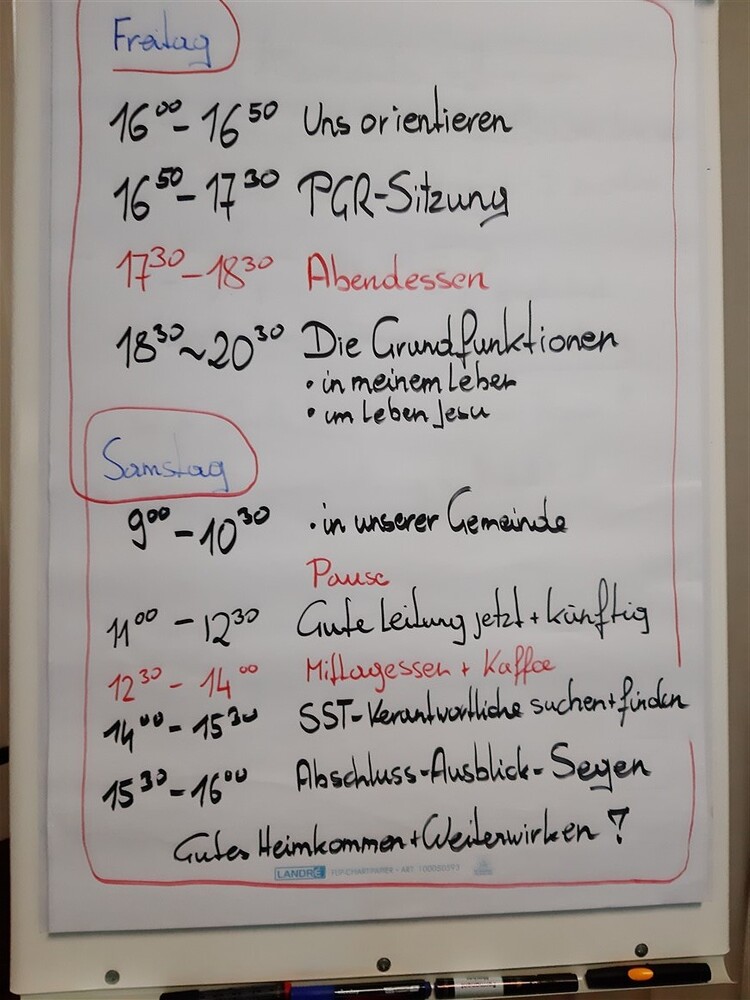 Freitag
16⁰⁰ - 16⁵⁰ Uns orientieren
16⁵⁰ - 17³⁰ PGR-Sitzung
17³⁰ - 18³⁰ Abendessen
18³⁰ ~ 20³⁰ Die Grundfunktionen
• in meinem Leben
• im Leben Jesu
Samstag
9⁰⁰ - 10³⁰ • in unserer Gemeinde
Pause
11⁰⁰ - 12³⁰ Gute Leitung jetzt + künftig
12³⁰ - 14⁰⁰ Mittagessen + Kaffee
14⁰⁰ - 15³⁰ SST-Verantwortliche suchen + finden
15³⁰ - 16⁰⁰ Abschluss - Ausblick - Segen
Gutes Heimkommen + Weiterwirken
LANDRÉ FLIPCHARTPAPIER • ART.